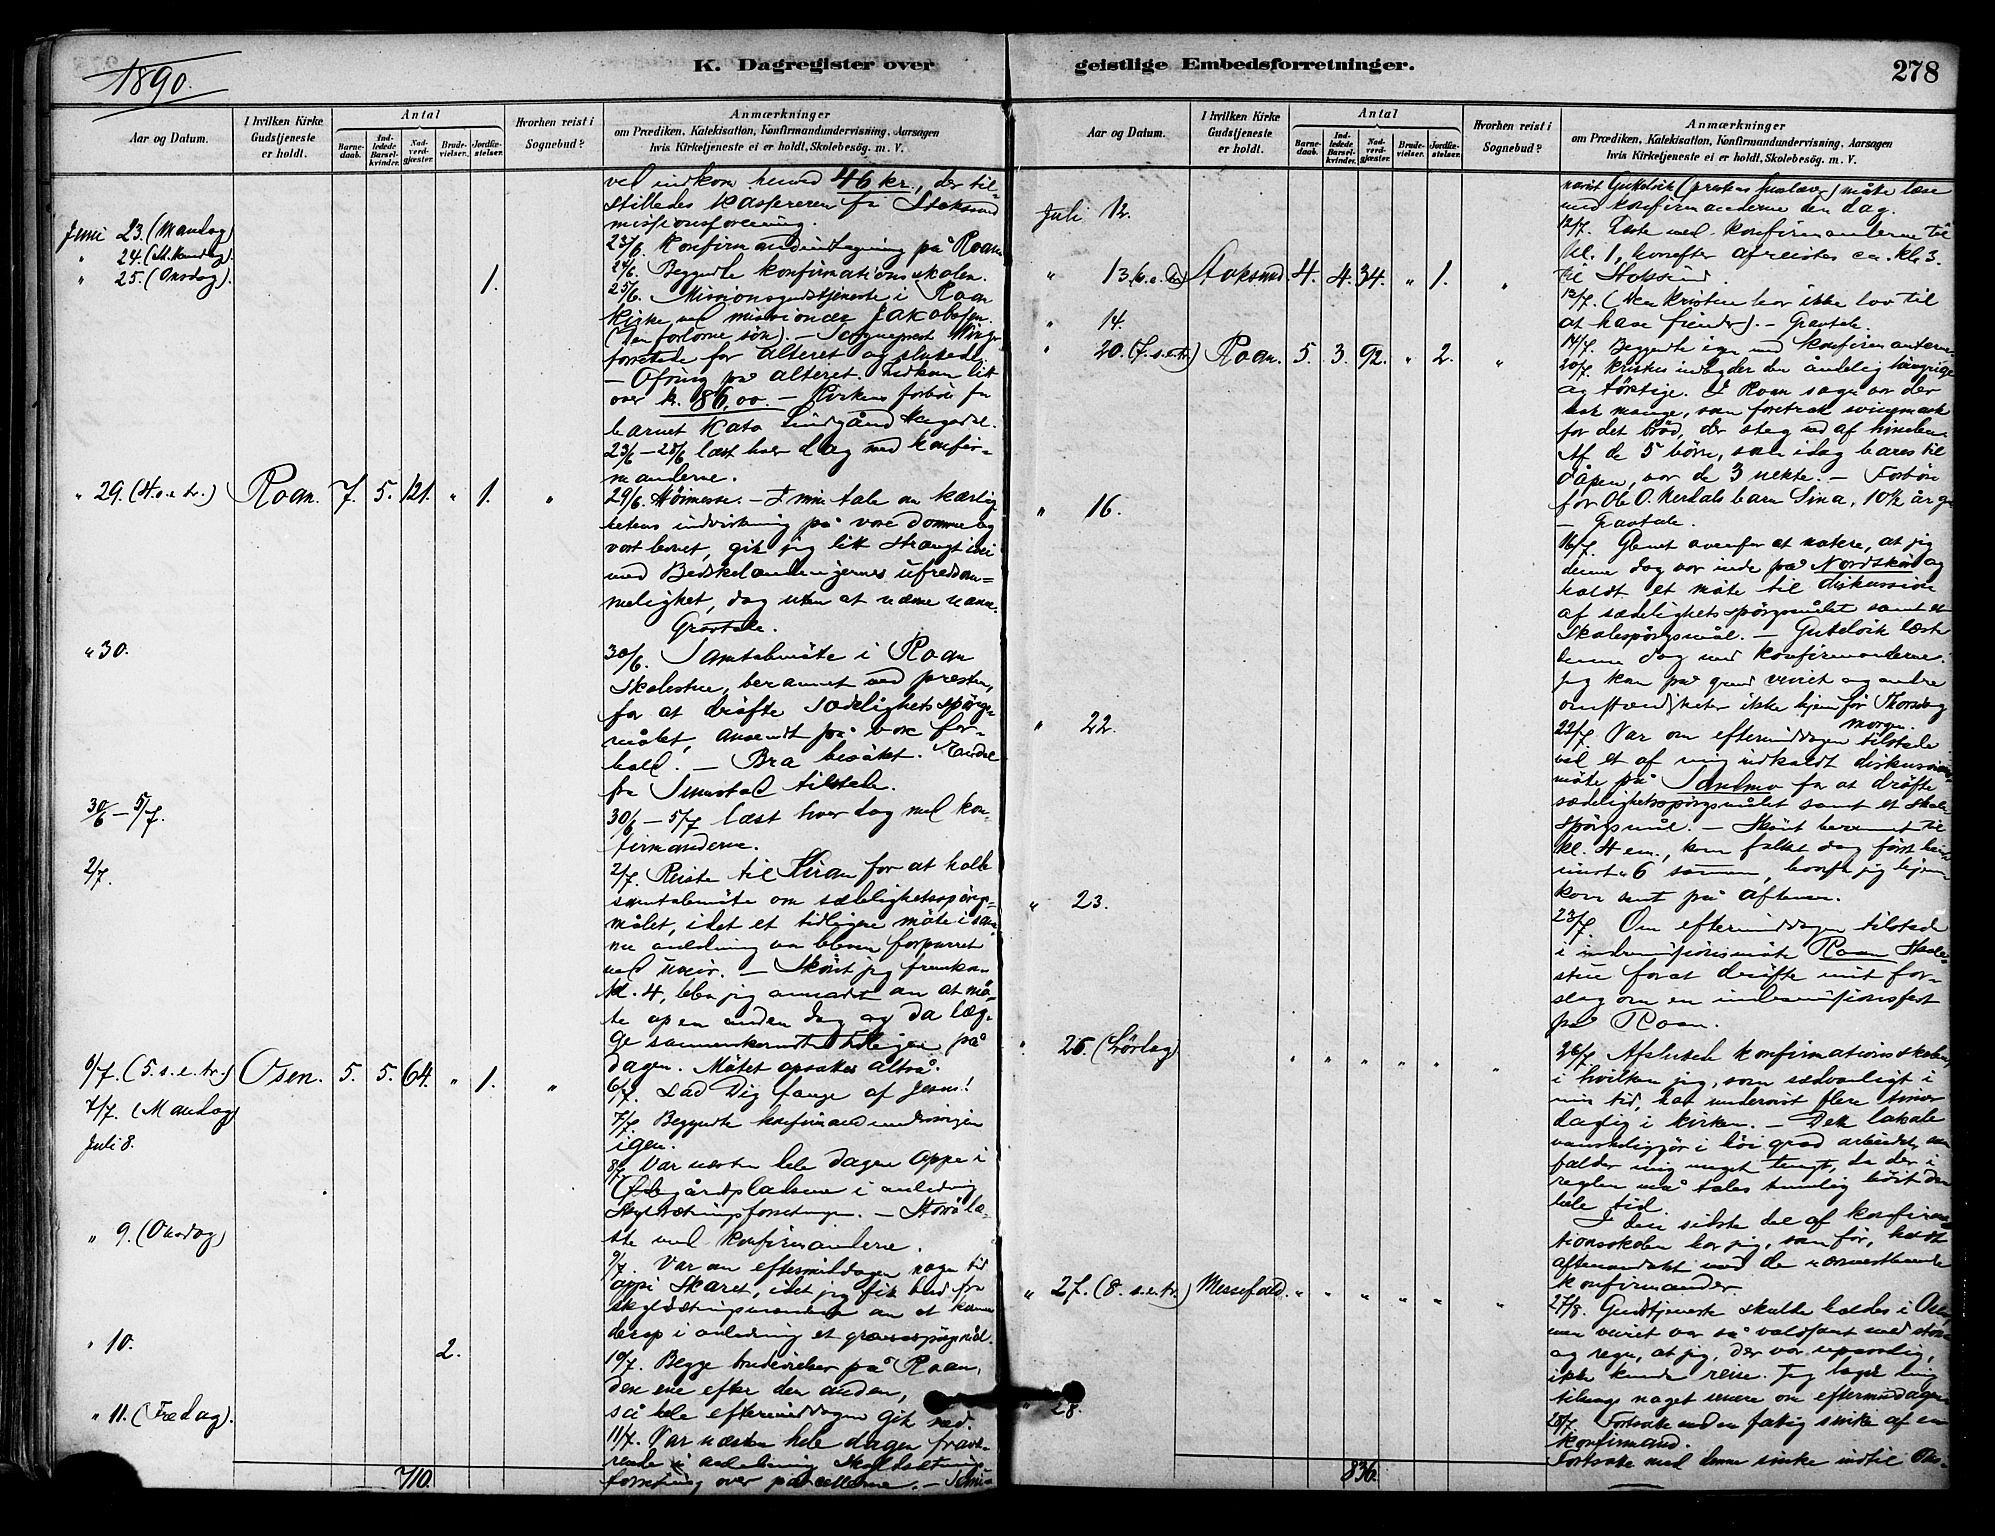 1890.
K. Dagregister over
Aar og Datum.
I hvilken Kirke Gudstjeneste er holdt.
Antal
Barnedaab.
Indledede Barselkvinder.
Nadverdgjæster.
Brudevielser.
Jordfæstelser.
Hvorhen reist i Sognebud?
Anmærkninger
om Prædiken, Katekisation, Konfirmandundervisning, Aarsagen
hvis Kirketjeneste ei er holdt, Skolebesøg. m. V.
ved indkom herved 46 kr., der til-
stilledes Kassereren for Stoksund
missionsforening.
Juni 23. (Mandag)
23/6. Konfirmandindtagning på Roan.
" 24.
24/6. Begyndte konfirmationsskolen.
" 25. (Onsdag) 1.
25/6. Missionsgudstjeneste i Roan
Kirke ved missionær Jakobsen.
(Den fortorne søn). – Sogneprest
forrettede for alteret og
– Ofring på alteret. Indkom litt
over kr. 86,00. – Kirkens forbøn for
barnet Kato
23/6 – 28/6 læst hver dag med konfir-
manderne.
" 29. (4. s. e. tr.) Roan. 7. 5. 121. " 1. "
29/6. Høimesse. – I min tale om kærlig-
hetens indvirkning på vore domme og
vort levnet, gik jeg litt strængt
med ufreddom-
melighet, dog uten at nævne navn.
Gravtale.
" 30.
30/6. Samtalemøte i Roan
Skolestue, berammet ved presten,
for at drøfte Sædelighetsspørgs-
målet, anvendt på vore for-
hold. – Bra besøket.
fra tilstede.
30/6 – 5/7.
30/6 – 5/7 læst hver dag med kon-
firmanderne.
2/7.
2/7. Reiste til Kiran for at holde
samtalemøte om sædelighetsspørgs-
målet, idet et tidligere møte i sam-
me anledning var bleven forpurret
ved uveir. – Skönt jeg fremkom
kl. 4, blev jeg anmodet om at mø-
te op en anden dag og da læg-
ge sammenkomsten tidligere på
dagen. Møtet opsattes altså.
6/7. (5. s. e. tr.) Osen. 5. 5. 64. " 1. "
6/7. Lad Dig fange af Jesus!
7/7. (Mandag)
7/7. Begyndte konfirmandundervisningen
igen.
Juli 8.
8/7. Var næsten hele dagen oppe i
i anledning
Skyldsætningsforretningen. –
te med konfirmanderne.
" 9. (Onsdag)
9/7. Var om eftermiddagen nogen tid
oppi Skaret, idet jeg fik bud fra
skyldsætningsmændene om at komme
derop i anledning et grænsespörsmål.
" 10. 2.
10/7. Begge brudevielser på Roan,
den ene efter den anden,
så hele eftermiddagen gik med.
" 11. (Fredag).
11/7. Var næsten hele dagen fravæ-
rende i anledning Skyldsætnings-
forretning over parcellerne. –
710.
geistlige Embedsforretninger.
278
Aar og Datum.
I hvilken Kirke Gudstjeneste er holdt.
Antal
Barnedaab.
Indledede Barselkvinder.
Nadverdgjæster.
Brudevielser.
Jordfæstelser.
Hvorhen reist i Sognebud?
Anmærkninger
om Prædiken, Katekisation, Konfirmandundervisning, Aarsagen
hvis Kirketjeneste ei er holdt, Skolebesøg. m. V.
Gutelvik (prestens huslærer) måtte læse
med konfirmanderne den dag.
Juli 12.
12/7. Læste med konfirmanderne til
kl. 1, hvorefter afreistes ca. kl. 3.
til Stoksund.
" 13. (6. s. e. tr.) Stoksund 4. 4. 34. " 1. "
13/7. (Den kristne har ikke lov til
at have fiender). – Gravtale.
" 14.
14/7. Begyndte igen med konfirmanderne.
" 20. (7. s. e. tr.) Roan. 5. 3. 92. " 2. "
20/7. Kristus indbyder den åndelig hungrige
og tørstige. I Roan sogn var der
nok mange, som foretrak svinemask
for det brød, der steg ned af himmelen.
Af de 5 børn, som idag bares til
dåpen, var de 3 uekte. – Forbøn
for Ole O. Nerdals barn Sina, 10½ år gl.
– Gravtale.
" 16.
16/7. Glemt ovenfor at notere, at jeg
denne dag var inde på Nordskör og
holdt et møte til diskussion
af sædelighetsspørgsmålet samt et
Skolespörgsmål. – Gutelvik læste
denne dag med konfirmanderne.
Jeg kom på grund veiret og andre
omstændigheter ikke hjem før Thorsdag
morgen.
" 22.
22/7. Var om eftermiddagen tilstede
ved et af mig indkaldt diskussions-
møte på Sandmo for at drøfte
sædelighetsspørgsmålet samt et Skole-
spörgsmål. – Skönt berammet til
kl. 4 em., kom folket dog först
imot 6 sammen, hvorfor jeg hjem-
kom sent på aftenen.
" 23.
23/7. Om eftermiddagen tilstede
i indremissionsmöte Roan Skole-
stue for at drøfte mit for-
slag om en indremissionsfest
på Roan.
" 26. (Lördag) " " " " " "
26/7. Afsluttede konfirmationsskolen,
i hvilken jeg, som sædvanligt i
min tid, har undervist flere timer
daglig i kirken. – Dette lokale
vanskeliggjør i høi grad arbeidet, som
falder mig meget tungt, da der i
reglen må tales temlig höit den
hele tid.
I den sidste del af konfirma-
tionsskolen har jeg, som før, holdt
aftenandakt med de nærmestboende
konfirmander.
" 27. (8. s. e. tr.) Messefald. " " " " " "
27/8. Gudstjeneste skulde holdes i Osen,
men veiret var så voldsomt med storm
og regn, at jeg, der var upasselig,
ikke kunde reise. Jeg
noget senere om eftermiddagen
" 28.
28/7. Fortsatte med en fattig sinke af en
konfirmand.
Fortsatte med denne sinke indtil Ons-
836.